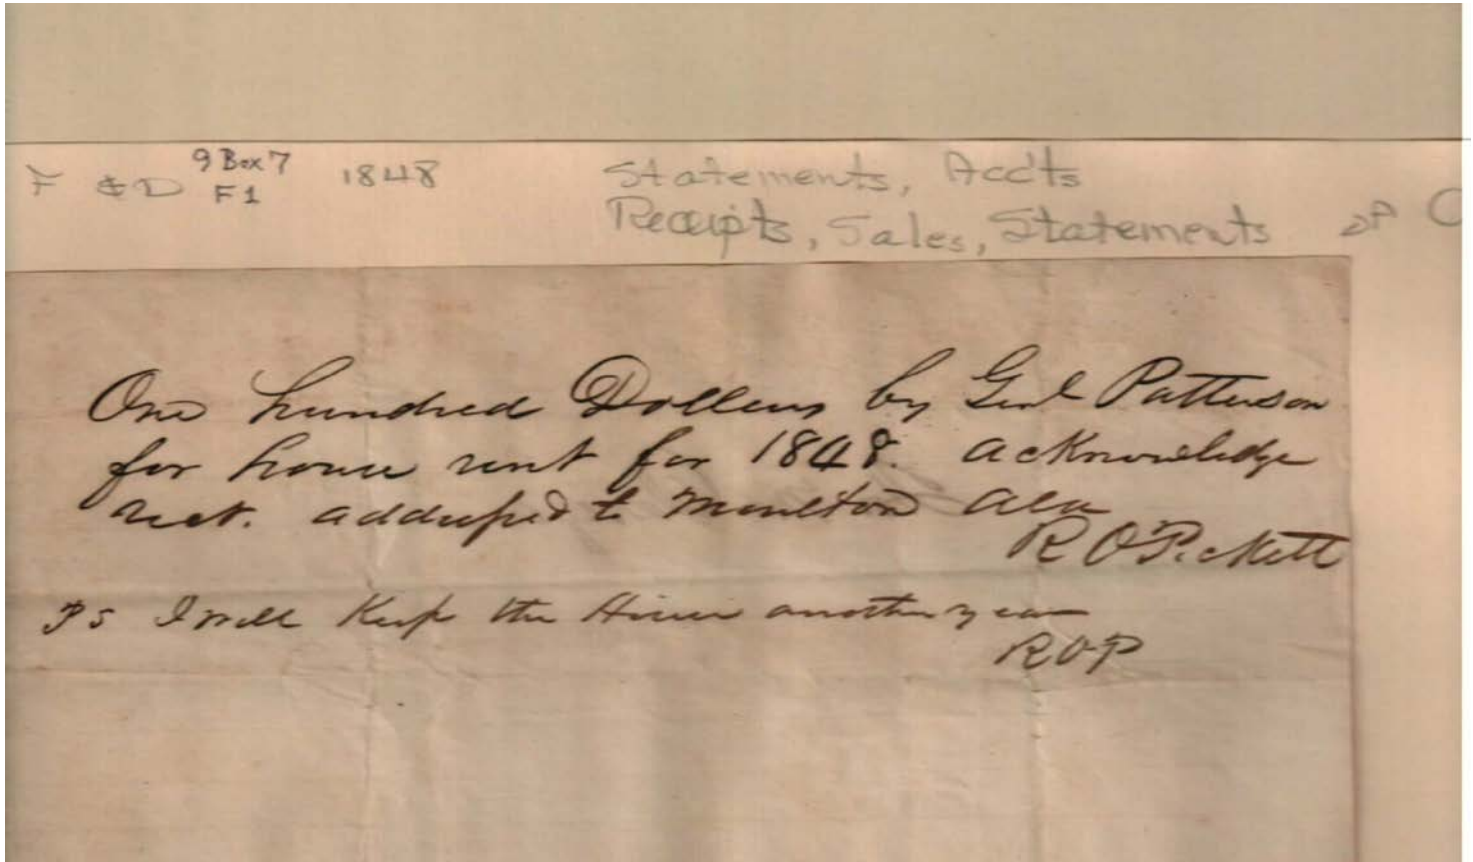 F & D 9 Box 7 1848 Statements, Accts
F1 Receipts, Sales, Statements 2P C
One hundred Dollars by Genl Patterson
for house rent for 1848. acknowledge
rect. addressed to Moulton Ala
R O Pickett
PS I will Keep the House another year
R O P